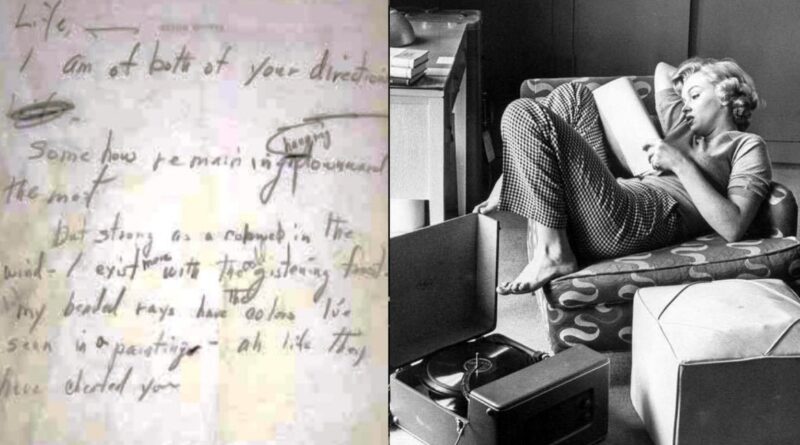 Life, —
I am of both of your direction
Some how remaining hanging downward
the most
but strong as a cobweb in the
wind – I exist more with the cold gistening frost.
my beaded rays have the colors I've
seen in a painting – ah life they
have cheated you